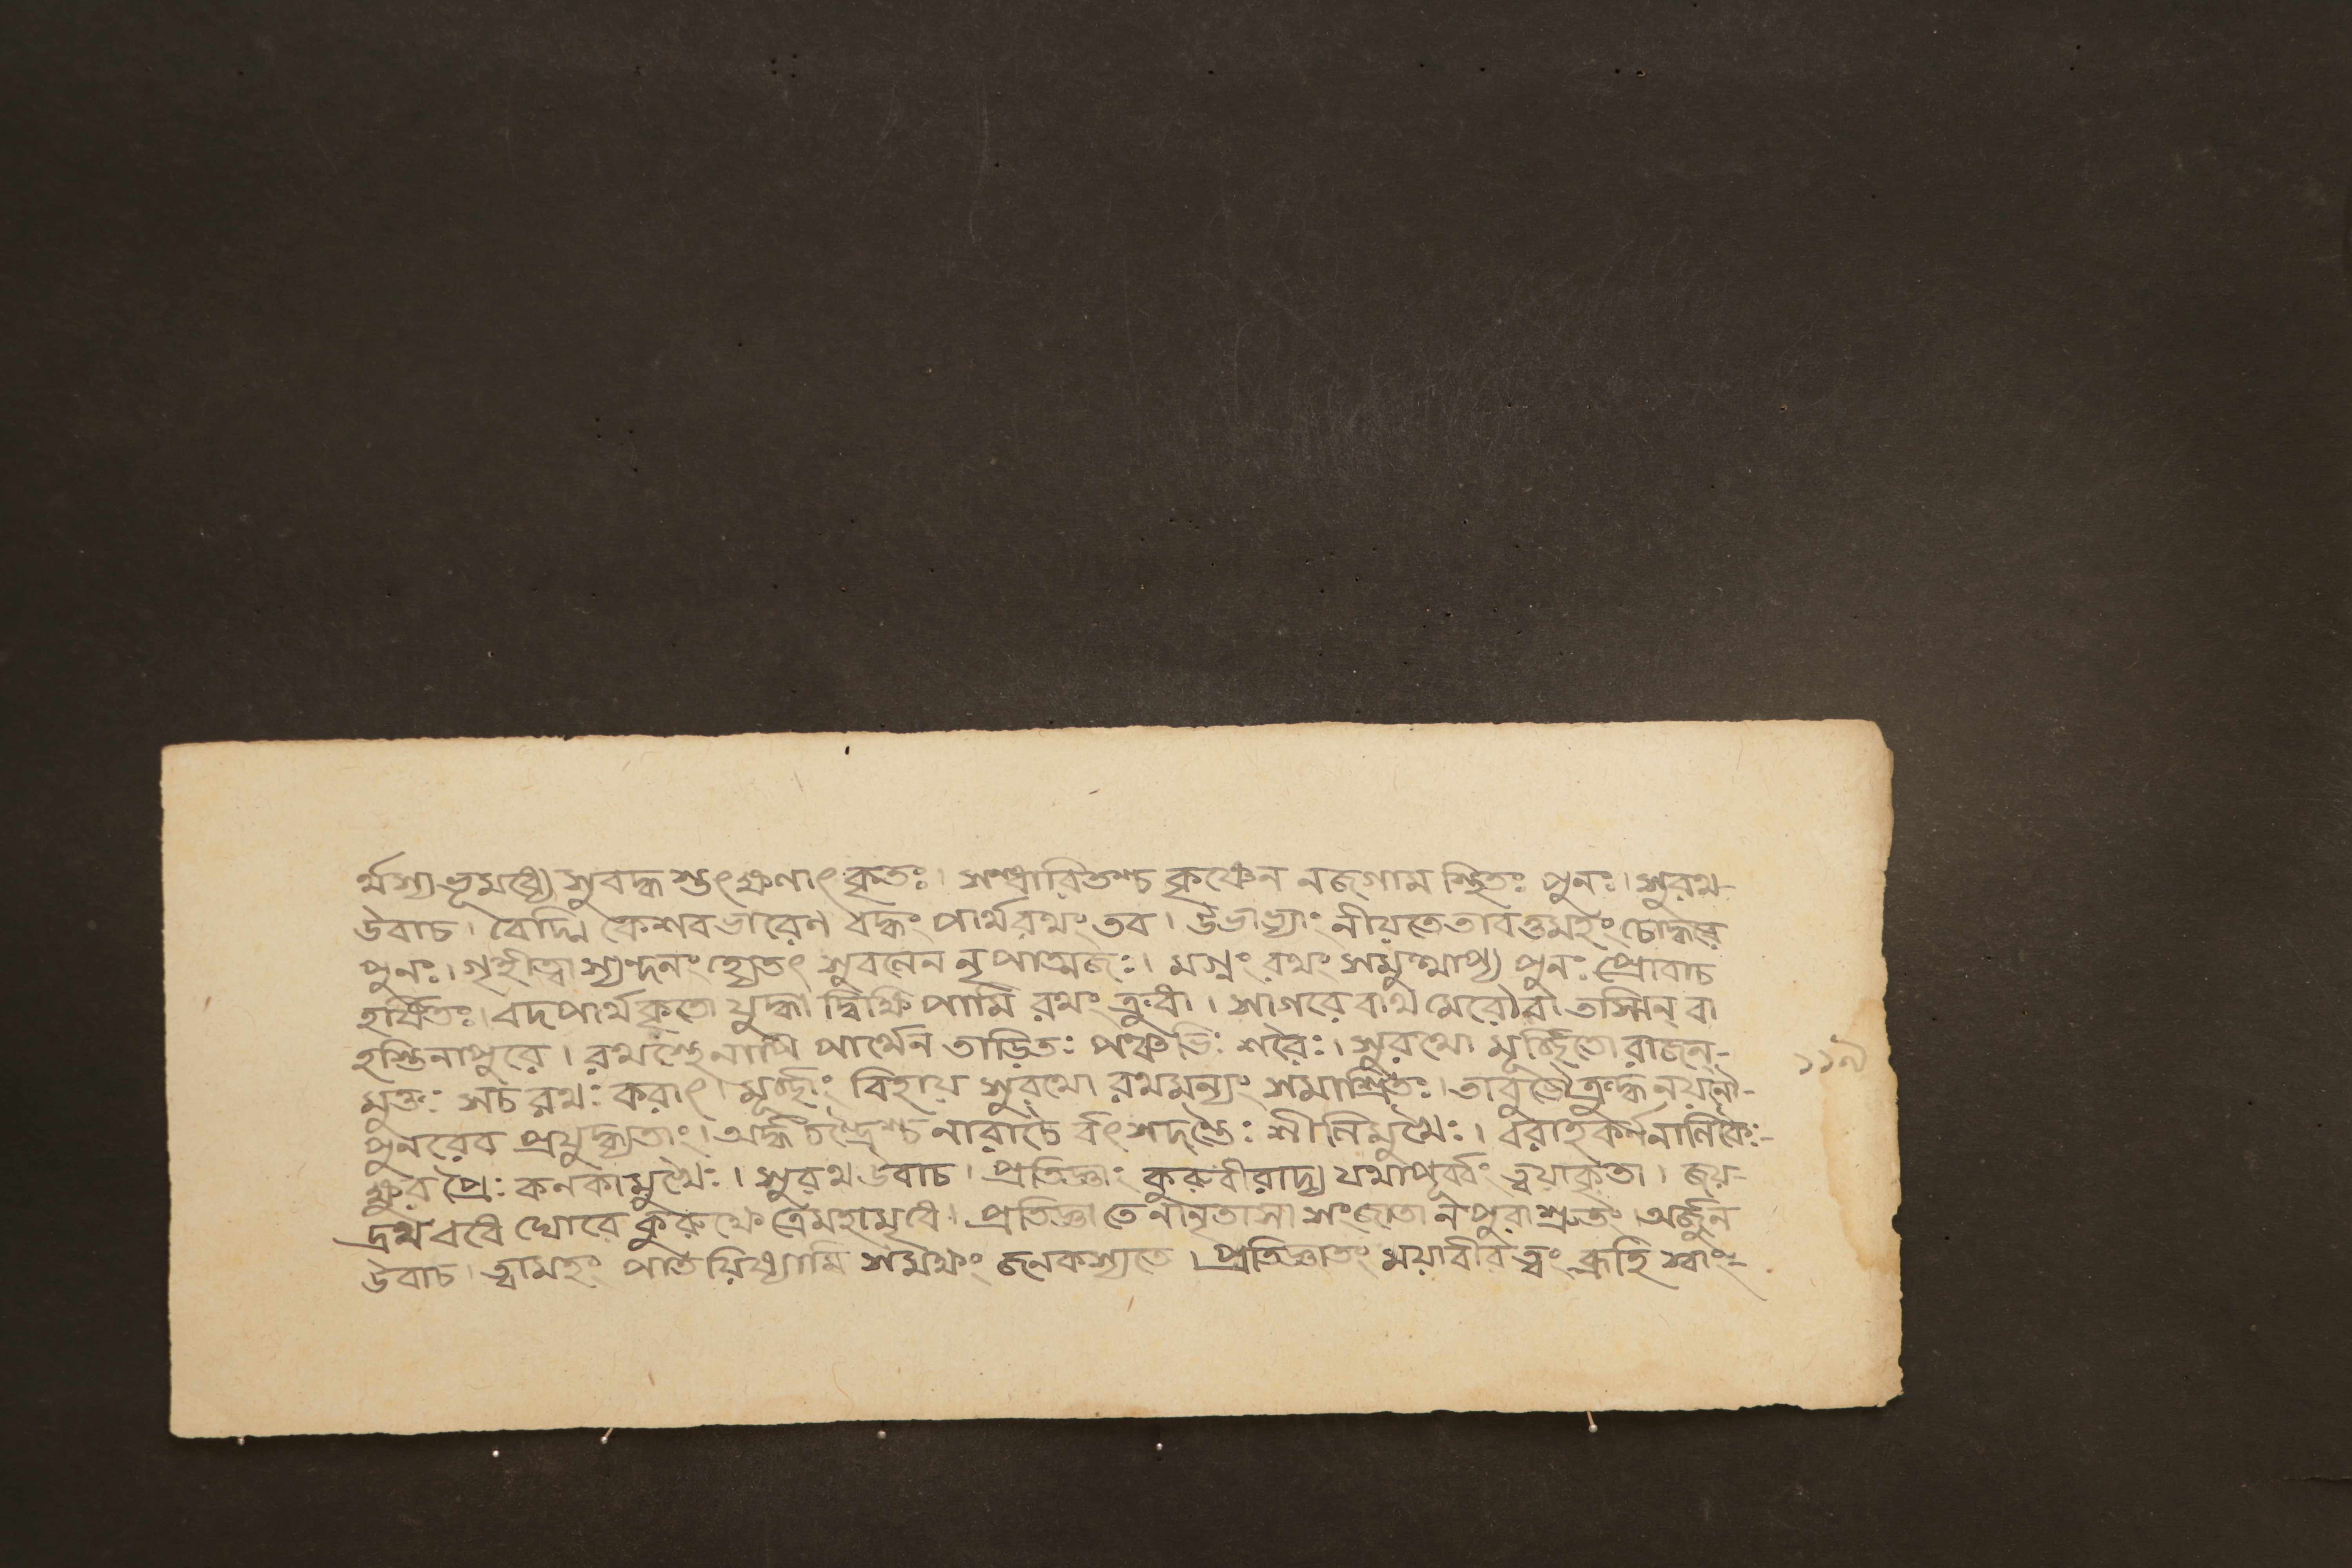 র্থস্য ভূমধ্যে সুবদ্ধ স্তৎক্ষণাৎ কৃতঃ। সম্প্রারিতশ্চ কৃষ্ণেন নজগাম স্থিতঃ পুনঃ। সুরথ-
উবাচ। বৈদ্মি কেশবভারেণ বদ্ধং পার্থরথং তব। উভাভ্যাং নীয়তেতাবত্তমহং
পুনঃ। গৃহীত্বা স্যন্দনং হ্যেতৎ সুবনেন নৃপাত্মজঃ। মগ্নং রথং সমুত্থাপ্য পুনঃ প্রোবাচ
হর্ষিতঃ। বদপার্থকৃতো যুদ্ধা দ্বিক্ষিপামি রথং ক্রুবী। সাগরে বাথ মেরৌবা তস্মিন্ বা
হস্তিনাপুরে। রথস্থেনাপি পার্থেন তাড়িতঃ পঞ্চভিঃ শরৈঃ। সুরথো মূর্চ্ছিতো রাজন্-
মুক্তঃ সচ রথঃ করাৎ। মূর্চ্ছাং বিহায় সুরথো রথমন্যং সমাশ্রিতঃ। তাবুভৌক্রুদ্ধ নয়নৌ-
পুনরেব প্রযুদ্ধ্যতাং। অর্দ্ধচন্দ্রৈশ্চ নারাচৈ র্বৎসদন্তৈঃ শীনিমুখৈঃ। বরাহকর্ণনানিকৈঃ-
ক্ষুর প্রৈঃ কনকামুখৈঃ। সুরথ উবাচ। প্রতিজ্ঞাং কুরুবীরাদ্য যথাপূর্ব্বং ত্বয়াকৃতা। জয়-
দ্রথ বধে ঘোরে কুরুক্ষেত্রেমহামৃধে। প্রতিজ্ঞা তে নানৃতাসা সংজাতা নপুরা শ্রুতং। অর্জ্জুন
উবাচ। ত্বামহং পাতয়িষ্যামি সমক্ষং জনকস্যতে। প্রতিজ্ঞাতং ময়াবীর ত্বং ব্রূহি
১১৯